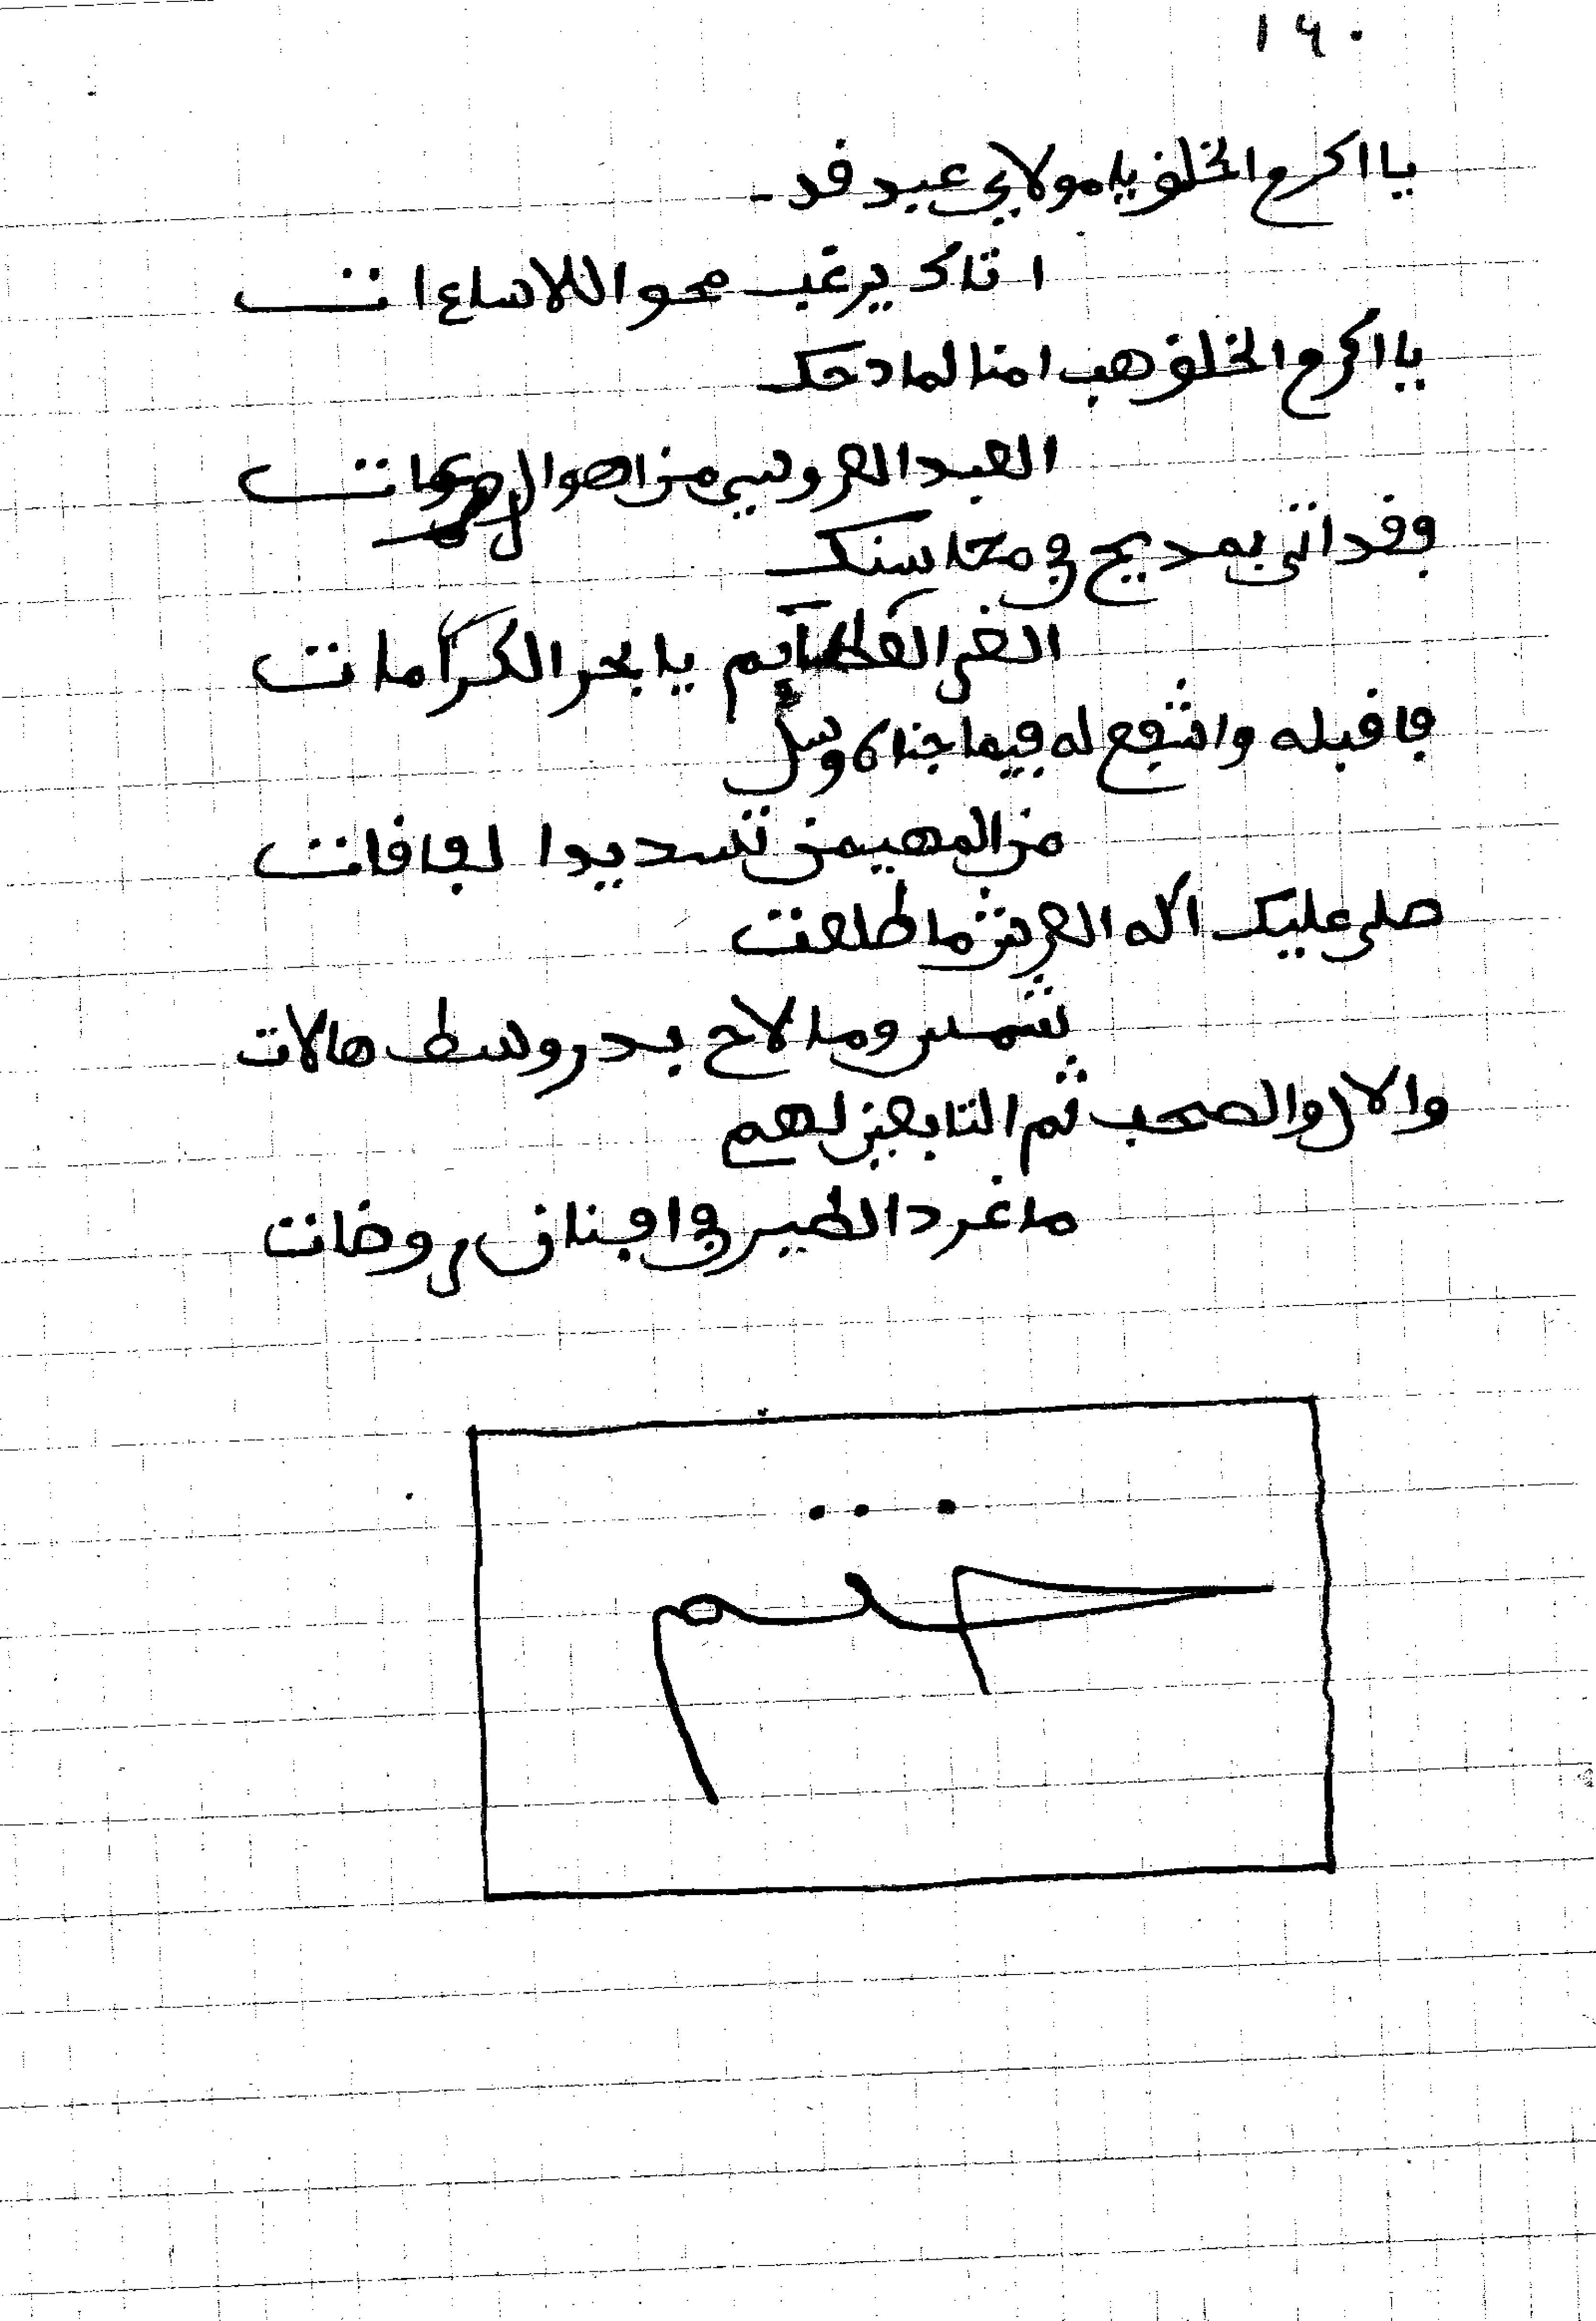 ١٩٠
يا اكرم الخلق يا مولاي عبد قد
اتاك يرغب محو اللاساءات
يا اكرم الخلق هب امنا لمادحك
العبد العروسي من اهوال
وقد اتى بمديح في محاسنك
الغر العظايم يا بحر الكرامات
فاقبله واشفع له فيما جناه وسل
من المهيمن تسديدا لفاقات
صلى عليك اله العرش ما طلعت
شمس وما لاح بدر وسط هالات
والال والصحب ثم التابعين لهم
ما غرد الطير في افنان روضات
ختم